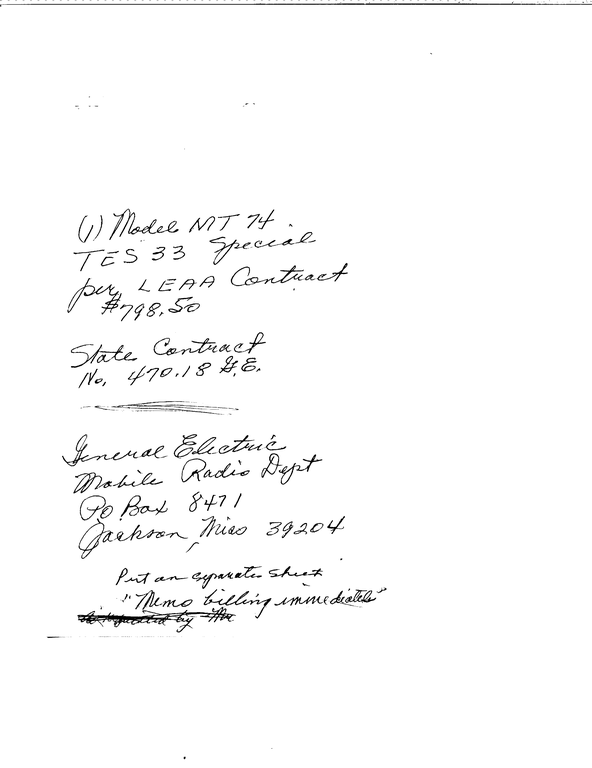 (1) Model MT 74
TES 33 Special
per LEAA Contract
$798.50
State Contract
No. 470.18 G.E.
General Electric
Mobile Radio Dept
PO Box 8471
Jackson, Miss 39204
Put on separate sheet
"Memo billing immediately"
by Mr